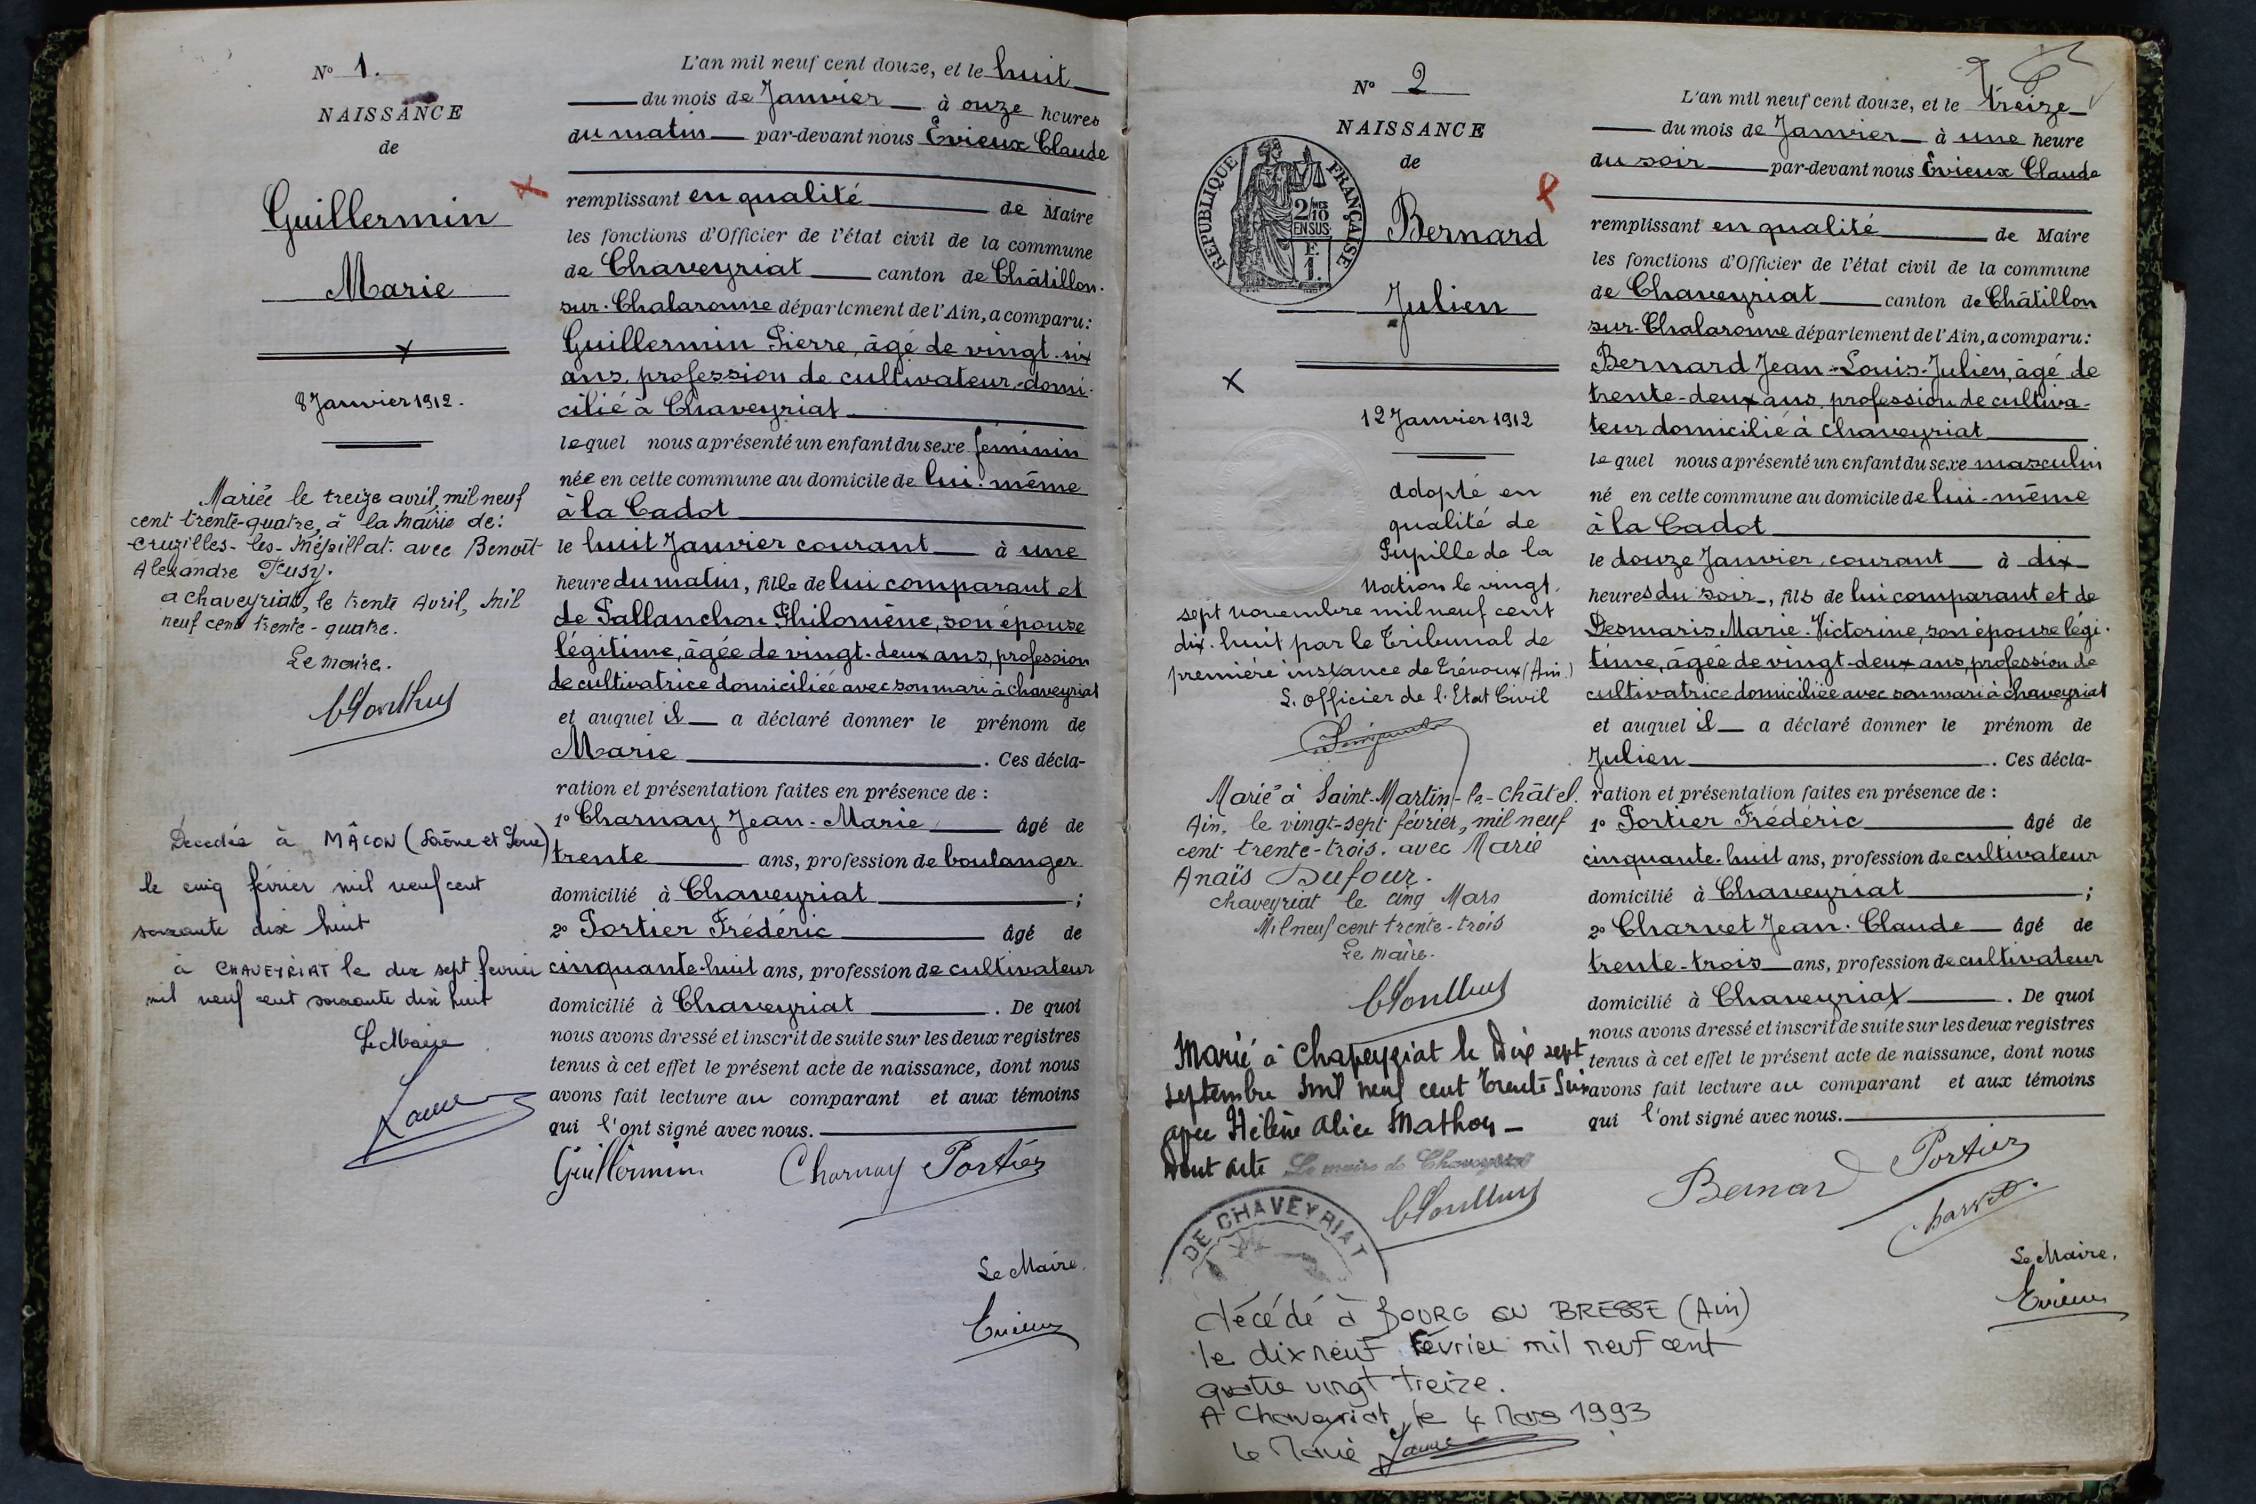 N° 1.
NAISSANCE
de
Guillermin
Marie
8 Janvier 1912.
Mariée le treize avril, mil neuf
cent trente-quatre, à la Mairie de:
Cruzilles-les-Mépillat. avec Benoît
Alexandre
a chaveyriat, le trente Avril, Mil
neuf cent trente-quatre.
Le maire.
Décédée à MÂCON (Saône et Loire)
le cinq février mil neuf cent
soixante dix huit
à CHAVEYRIAT le dix sept février
mil neuf cent soixante dix huit
Le Maire
L'an mil neuf cent douze, et le huit
du mois de Janvier à onze heures
du matin par-devant nous Évieux Claude
remplissant en qualité de Maire
les fonctions d'Officier de l'état civil de la commune
de Chaveyriat canton de Châtillon-
sur-Chalaronne département de l'Ain, a comparu:
Guillermin Pierre, âgé de vingt-six
ans, profession de cultivateur, domi-
cilié à Chaveyriat
lequel nous a présenté un enfant du sexe féminin
née en cette commune au domicile de lui-même
à la Cadot
le huit Janvier courant à une
heure du matin, fille de lui comparant et
de Pallanchon Philomène, son épouse
légitime, âgée de vingt-deux ans, profession
de cultivatrice domiciliée avec son mari à chaveyriat
et auquel il a déclaré donner le prénom de
Marie. Ces décla-
ration et présentation faites en présence de :
1° Charnay Jean-Marie âgé de
trente ans, profession de boulanger
domicilié à Chaveyriat ;
2° Portier Frédéric âgé de
cinquante-huit ans, profession de cultivateur
domicilié à Chaveyriat. De quoi
nous avons dressé et inscrit de suite sur les deux registres
tenus à cet effet le présent acte de naissance, dont nous
avons fait lecture au comparant et aux témoins
qui l'ont signé avec nous.
Guillermin Charnay Portier
Le Maire.
Evieux
N° 2
NAISSANCE
de
RÉPUBLIQUE FRANÇAISE
2/10 MES
EN SUS
F
1.
Bernard
Julien
12 Janvier 1912
adopté en
qualité de
Pupille de la
Nation le vingt-
sept novembre mil neuf cent
dix-huit par le Tribunal de
première instance de Trévoux (Ain.)
L'officier de l'Etat Civil
Marié à Saint-Martin-le-Châtel.
Ain, le vingt-sept février, mil neuf
cent trente-trois. avec Marie
Anaïs Dufour.
Chaveyriat le cinq Mars
Mil neuf cent trente-trois
Le maire.
Marié à Chaveyriat le Dix sept
septembre mil neuf cent trente six
avec Hélène Alice Mathon
Dont acte Le maire de Chaveyriat
DE CHAVEYRIAT
décédé à BOURG EN BRESSE (Ain)
le dix neuf Février mil neuf cent
quatre vingt treize.
A Chaveyriat, le 4 Mars 1993
Le Maire
L'an mil neuf cent douze, et le treize
du mois de Janvier à une heure
du soir par-devant nous Évieux Claude
remplissant en qualité de Maire
les fonctions d'Officier de l'état civil de la commune
de Chaveyriat canton de Châtillon
sur-Chalaronne département de l'Ain, a comparu:
Bernard Jean-Louis-Julien, âgé de
trente-deux ans, profession de cultiva-
teur domicilié à chaveyriat
lequel nous a présenté un enfant du sexe masculin
né en cette commune au domicile de lui-même
à la Cadot
le douze Janvier, courant à dix
heures du soir, fils de lui comparant et de
Desmaris Marie-Victorine, son épouse légi-
time, âgée de vingt-deux ans, profession de
cultivatrice domiciliée avec son mari à chaveyriat
et auquel il a déclaré donner le prénom de
Julien. Ces décla-
ration et présentation faites en présence de :
1° Portier Frédéric âgé de
cinquante-huit ans, profession de cultivateur
domicilié à Chaveyriat ;
2° Charvet Jean-Claude âgé de
trente-trois ans, profession de cultivateur
domicilié à Chaveyriat. De quoi
nous avons dressé et inscrit de suite sur les deux registres
tenus à cet effet le présent acte de naissance, dont nous
avons fait lecture au comparant et aux témoins
qui l'ont signé avec nous.
Bernard Portier
Charvet
Le Maire.
Evieux